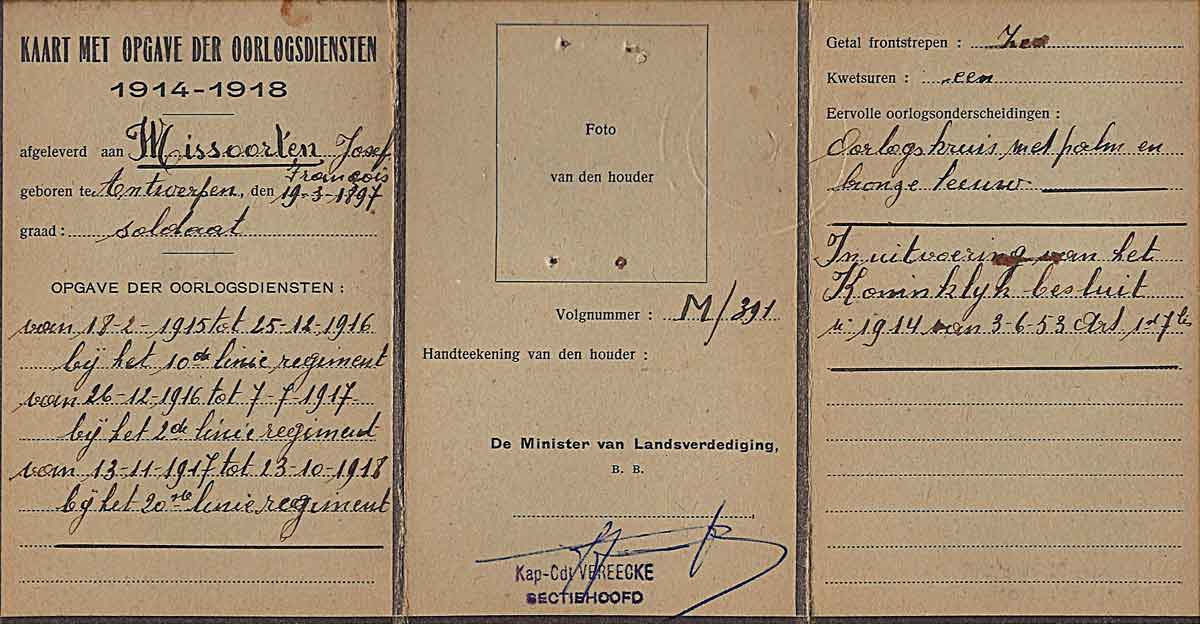 KAART MET OPGAVE DER OORLOGSDIENSTEN
1914-1918
afgeleverd aan Missoorten Josef
François
geboren te Antwerpen, den 19-3-1897
graad : soldaat
OPGAVE DER OORLOGSDIENSTEN :
van 18-2-1915 tot 25-12-1916
bij het 10de linie regiment
van 26-12-1916 tot 7-7-1917
bij het 2de linie regiment
van 13-11-1917 tot 23-10-1918
bij het 20ste linie regiment
Foto
van den houder
Volgnummer : M/391
Handteekening van den houder :
De Minister van Landsverdediging,
B. B.
Kap-Cdt VEREECKE
SECTIEHOOFD
Getal frontstrepen : Zes
Kwetsuren : een
Eervolle oorlogsonderscheidingen :
Oorlogskruis met palm en
bronze leeuw
In uitvoering van het
Koninklijk besluit
1914 van 3-6-53 Art 1